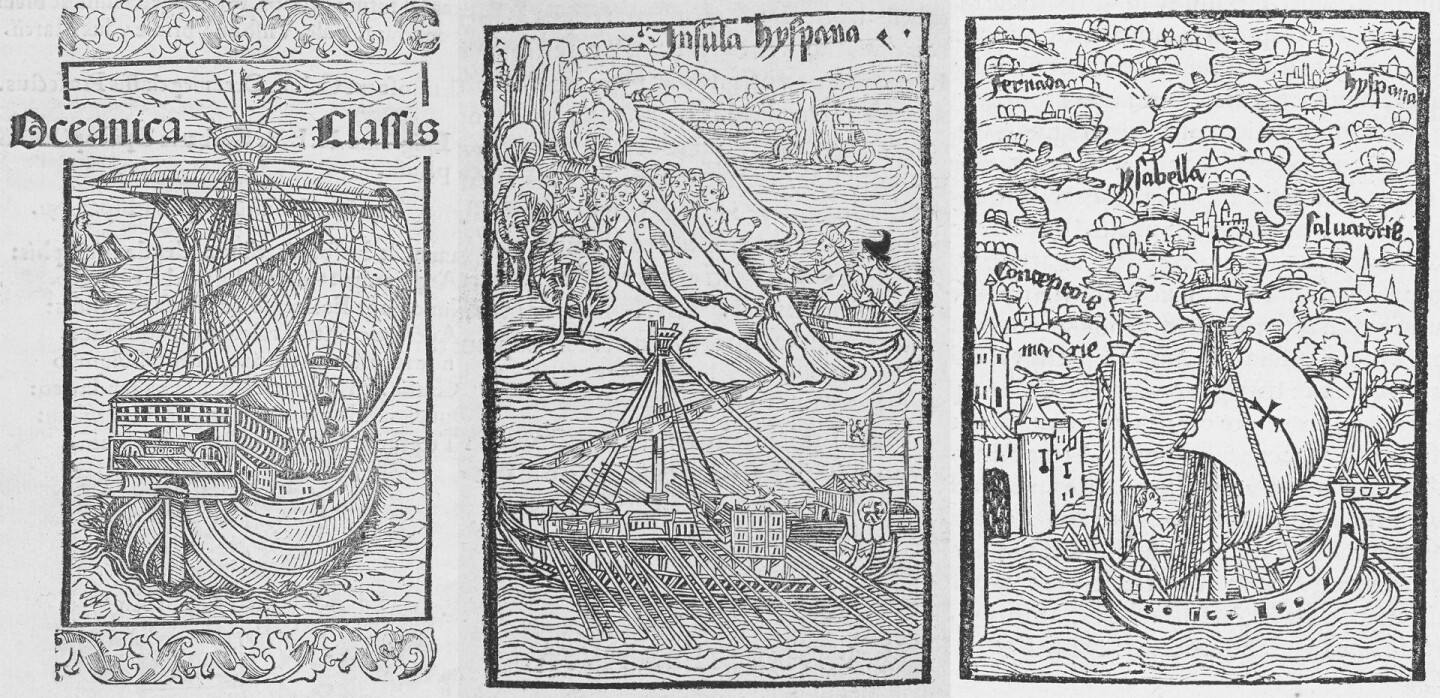 Oceanica Classis
Insula hyspana
fernãda
hyspana
ysabella
saluatorie
Conceptoĩe
marie